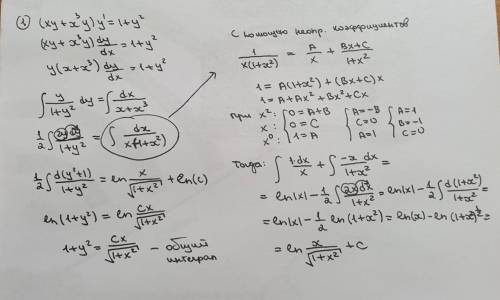 ① (xy + x³y) y' = 1+y²
(xy + x³y) dy/dx = 1+y²
y(x+x³) dy/dx = 1+y²
∫ y/(1+y²) dy = ∫ dx/(x+x³)
1/2 ∫ 2ydy/(1+y²) = ∫ dx/(x(1+x²))
1/2 ∫ d(y²+1)/(1+y²) = ln x/√(1+x²) + ln(c)
ln(1+y²) = ln Cx/√(1+x²)
1+y² = Cx/√(1+x²) – общий интеграл
С помощью неопр. коэффициентов
1/(x(1+x²)) = A/x + (Bx+C)/(1+x²)
1 = A(1+x²) + (Bx+C)x
1 = A + Ax² + Bx² + Cx
при x²: { 0=A+B { A=-B { A=1
x: { 0=C { C=0 { B=-1
x⁰: { 1=A { A=1 { C=0
Тогда: ∫ 1·dx/x + ∫ -x dx/(1+x²) =
= ln|x| - 1/2 ∫ 2xdx/(1+x²) = ln|x| - 1/2 ∫ d(1+x²)/(1+x²) =
= ln|x| - 1/2 ln(1+x²) = ln(x) - ln(1+x²)^½ =
= ln x/√(1+x²) + C